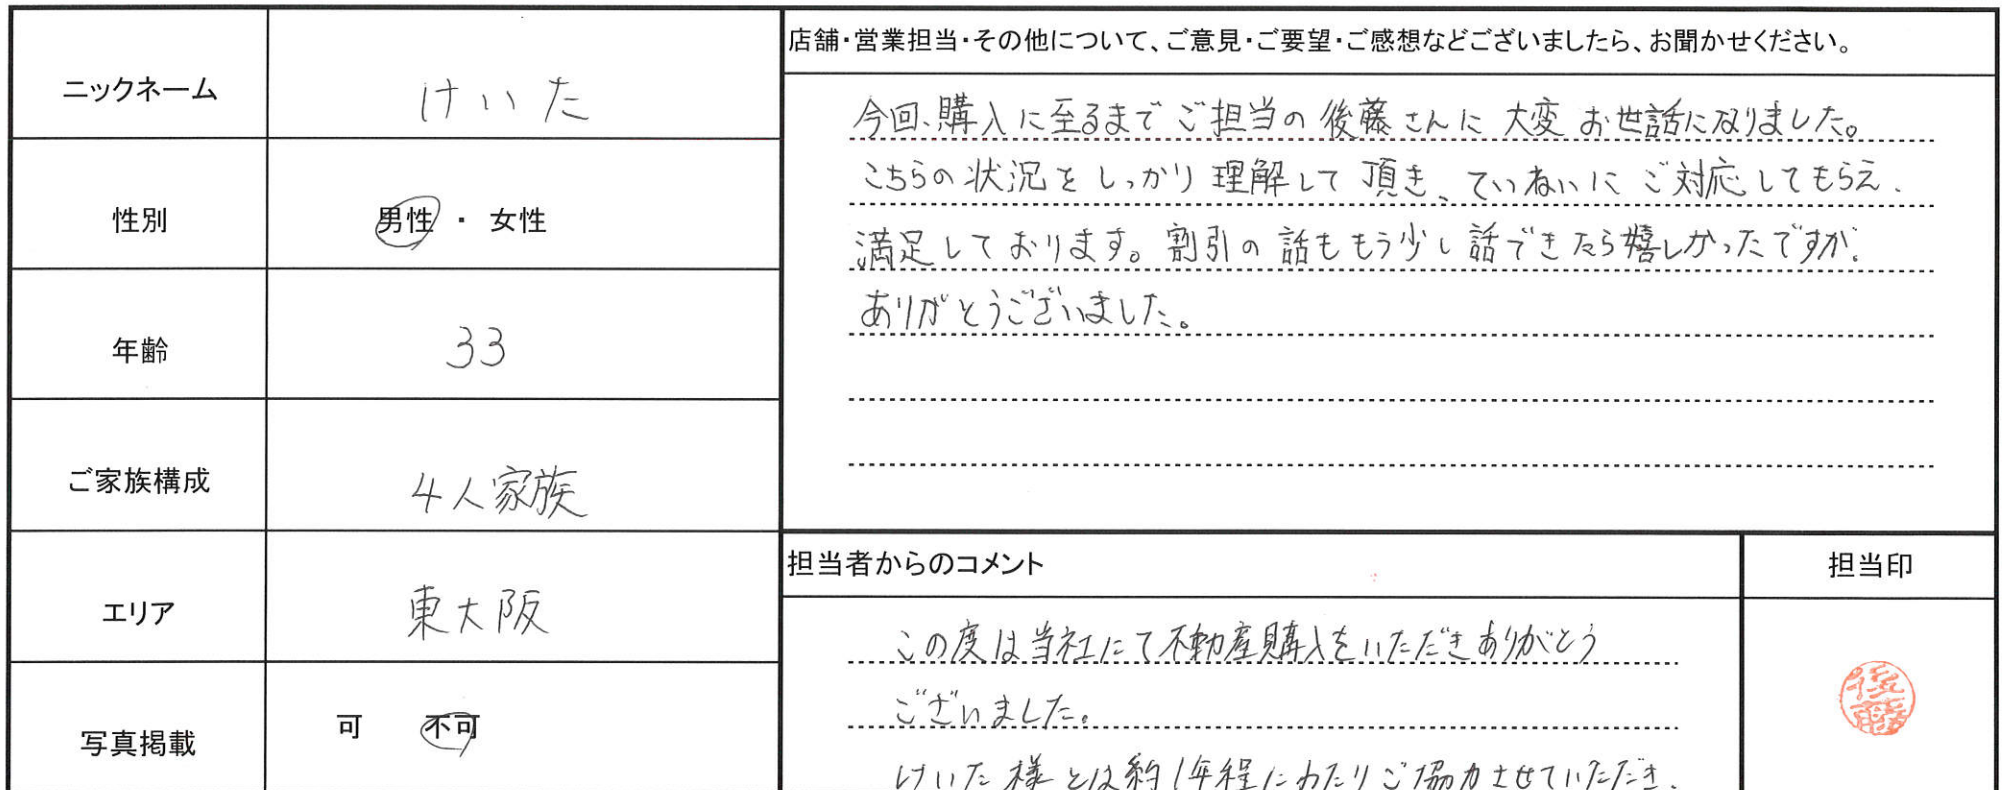 ニックネーム
けいた
性別
男性 ・ 女性
年齢
33
ご家族構成
4人家族
エリア
東大阪
写真掲載
可 不可
店舗・営業担当・その他について、ご意見・ご要望・ご感想などございましたら、お聞かせください。
今回、購入に至るまでご担当の後藤さんに大変お世話になりました。
こちらの状況をしっかり理解して頂き、ていねいにご対応してもらえ、
満足しております。割引の話ももう少し話できたら嬉しかったですが、
ありがとうございました。
担当者からのコメント
この度は当社にて不動産購入をいただきありがとう
ございました。
けいた様とは約1年程にわたりご協力させていただき、
担当印
後藤